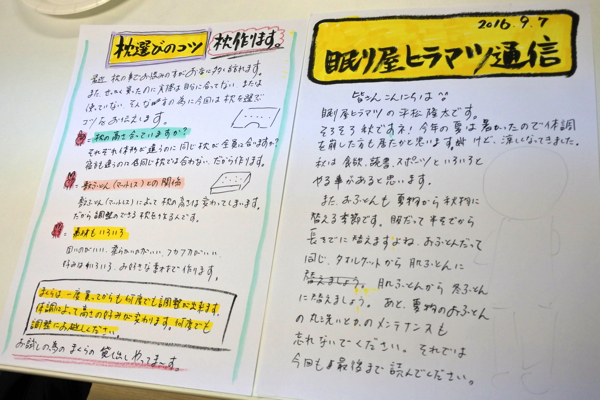 枕選びのコツ 枕作ります。
最近、枕の事でお悩みの方がお店に多く訪れます。
また、せっかく買ったのに実際は自分に合ってない または
使っていない そんな方の為に今回は枕を選ぶ
コツをお伝えします。
枕の高さ合っていますか？
それぞれ体形が違うのに同じ枕が全員に合いますか？
敷ふとん(マットレス)との関係
敷ふとん(マットレス)によって枕の高さは変わってしまいます。
だから調整のできる枕を作るんです。
素材もいろいろ
固いのがいい、柔らかいのがいい、フカフカがいい
好みはいろいろ。お好きな素材で作ります。
まくらは一度買ってからも何度でも調整が出来ます。
体調によって高さの好みが変わります。何度でも
調整にお越しください。
お試しの為のまくらの貸し出しやってま〜す。
2016.9.7
眠り屋ヒラマツ通信
皆さんこんにちは
眠り屋ヒラマツの平松隆太です。
そろそろ秋ですネ！今年の夏は暑かったので体調
を崩した方も居たかと思います けど、涼しくなってきました。
秋は食欲、読書、スポーツといろいろと
やる事があると思います。
また、おふとんも夏物から秋物に
替える季節です。服だって半そでから
長そでに替えますよね。おふとんだって
同じ、タオルケットから肌ふとんに
替えましょう。肌ふとんから冬ふとん
に替えましょう。あと、夏物のおふとん
の丸洗いとかのメンテナンスも
忘れないでください。それでは
今回も最後まで読んでください。